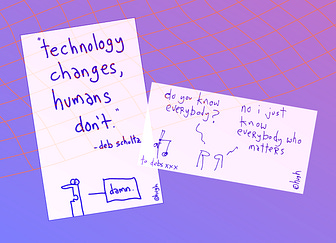 "technology
changes,
humans
don't."
- deb schultz
damn.
@hugh
do you know
everybody?
no i just
know
everybody who
matters
to debs xxx
@hugh